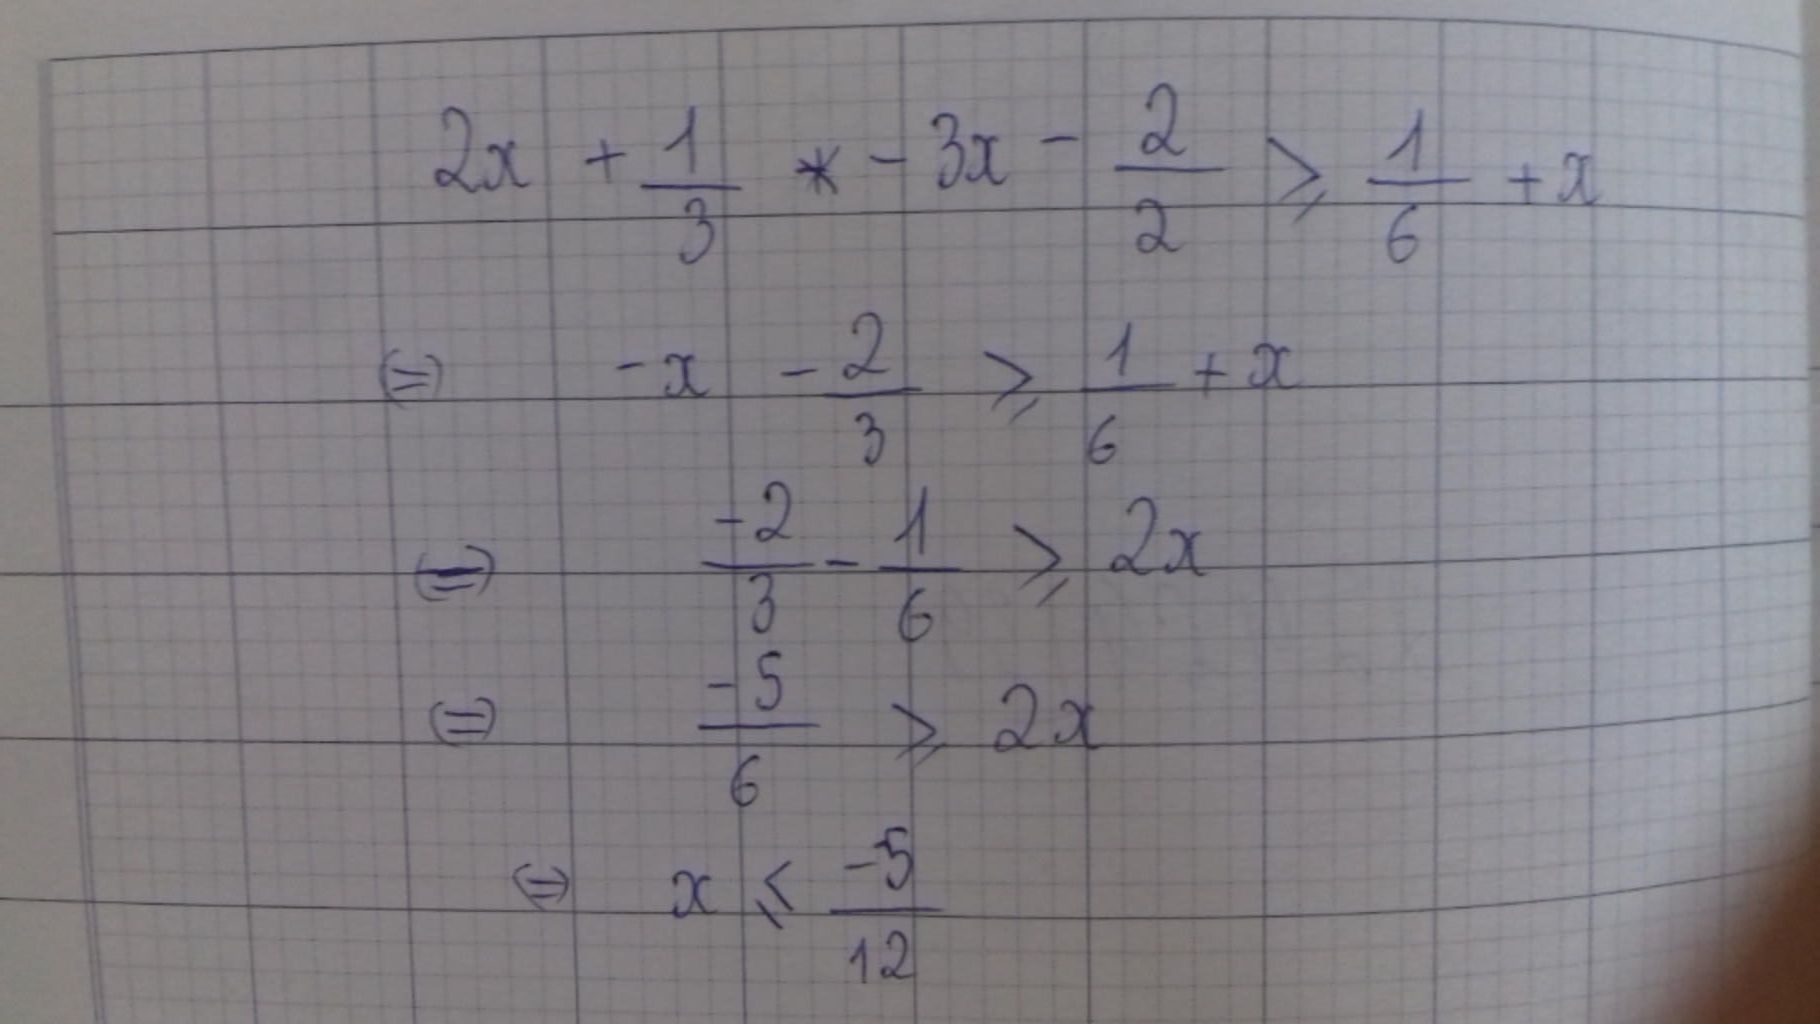 2x + 1/3 * - 3x - 2/2 ⩾ 1/6 + x
(=) -x - 2/3 ⩾ 1/6 + x
(=) -2/3 - 1/6 ⩾ 2x
(=) -5/6 ⩾ 2x
(=) x ⩽ -5/12